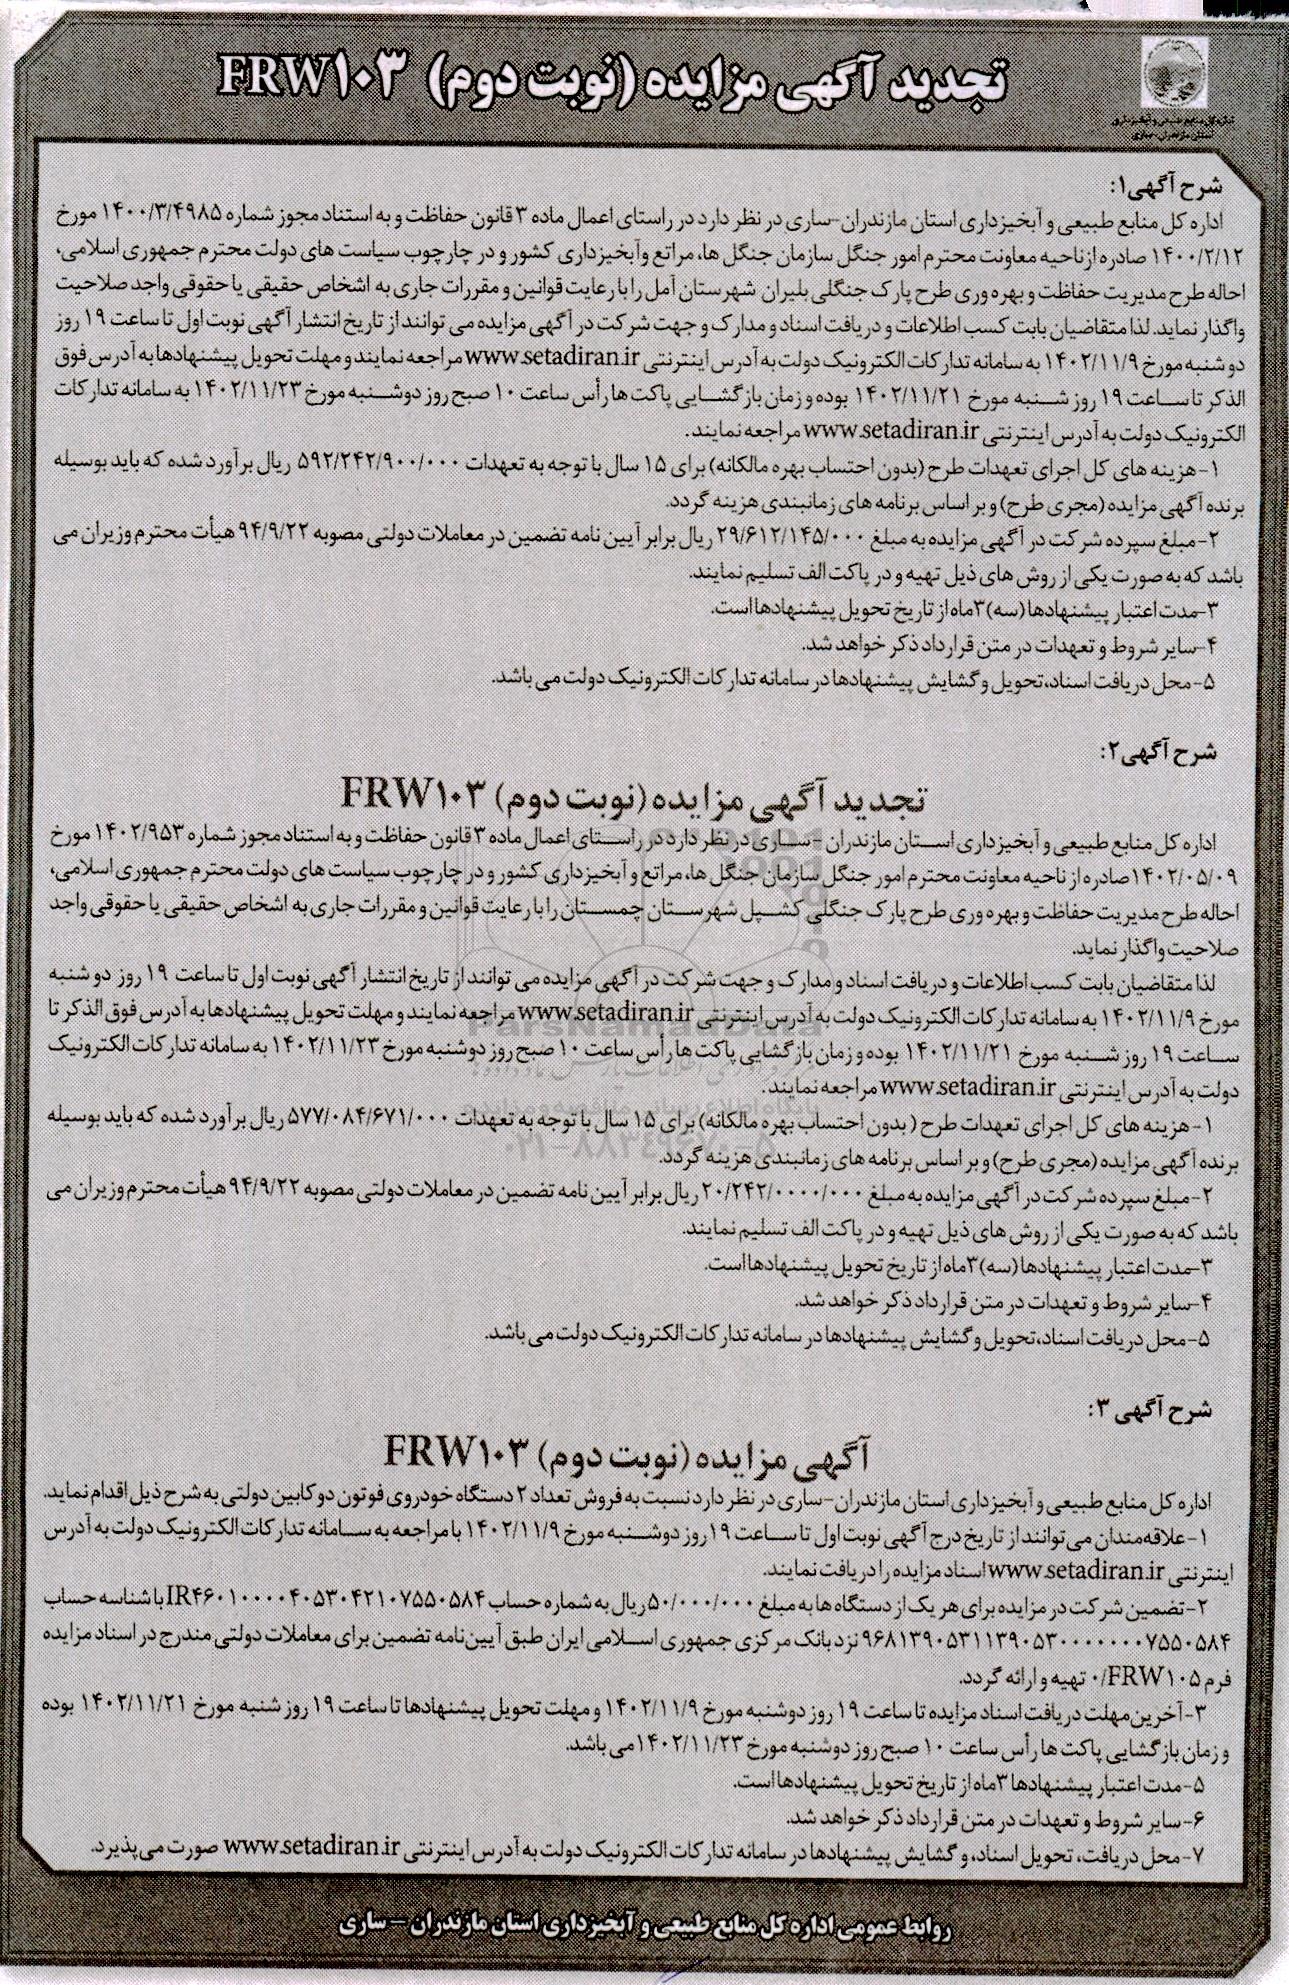 تجدید آگهی مزایده (نوبت دوم) FRW۱۰۳
اداره کل منابع طبیعی و آبخیزداری
استان مازندران-ساری
شرح آگهی۱:
اداره کل منابع طبیعی و آبخیزداری استان مازندران-ساری در نظر دارد در راستای اعمال ماده ۳ قانون حفاظت و به استناد مجوز شماره ۱۴۰۰/۳/۴۹۸۵ مورخ
۱۴۰۰/۲/۱۲ صادره از ناحیه معاونت محترم امور جنگل سازمان جنگل ها، مراتع وآبخیزداری کشور و در چارچوب سیاست های دولت محترم جمهوری اسلامی،
احاله طرح مدیریت حفاظت و بهره وری طرح پارک جنگلی بلیران شهرستان آمل را با رعایت قوانین و مقررات جاری به اشخاص حقیقی یا حقوقی واجد صلاحیت
واگذار نماید. لذا متقاضیان بابت کسب اطلاعات و دریافت اسناد و مدارک و جهت شرکت در آگهی مزایده می توانند از تاریخ انتشار آگهی نوبت اول تا ساعت ۱۹ روز
دوشنبه مورخ ۱۴۰۲/۱۱/۹ به سامانه تدارکات الکترونیک دولت به آدرس اینترنتی www.setadiran.ir مراجعه نمایند و مهلت تحویل پیشنهادها به آدرس فوق
الذکر تا ساعت ۱۹ روز شنبه مورخ ۱۴۰۲/۱۱/۲۱ بوده و زمان بازگشایی پاکت ها رأس ساعت ۱۰ صبح روز دوشنبه مورخ ۱۴۰۲/۱۱/۲۳ به سامانه تدارکات
الکترونیک دولت به آدرس اینترنتی www.setadiran.ir مراجعه نمایند.
۱-هزینه های کل اجرای تعهدات طرح (بدون احتساب بهره مالکانه) برای ۱۵ سال با توجه به تعهدات ۵۹۲/۲۴۲/۹۰۰/۰۰۰ ریال برآورد شده که باید بوسیله
برنده آگهی مزایده (مجری طرح) و بر اساس برنامه های زمانبندی هزینه گردد.
۲-مبلغ سپرده شرکت در آگهی مزایده به مبلغ ۲۹/۶۱۲/۱۴۵/۰۰۰ ریال برابر آیین نامه تضمین در معاملات دولتی مصوبه ۹۴/۹/۲۲ هیأت محترم وزیران می
باشد که به صورت یکی از روش های ذیل تهیه و در پاکت الف تسلیم نمایند.
۳-مدت اعتبار پیشنهادها (سه) ۳ماه از تاریخ تحویل پیشنهادها است.
۴-سایر شروط و تعهدات در متن قرارداد ذکر خواهد شد.
۵-محل دریافت اسناد، تحویل و گشایش پیشنهادها در سامانه تدارکات الکترونیک دولت می باشد.
شرح آگهی۲:
تجدید آگهی مزایده (نوبت دوم) FRW۱۰۳
اداره کل منابع طبیعی و آبخیزداری استان مازندران -ساری در نظر دارد در راستای اعمال ماده ۳ قانون حفاظت و به استناد مجوز شماره ۱۴۰۲/۹۵۳ مورخ
۱۴۰۲/۰۵/۰۹ صادره از ناحیه معاونت محترم امور جنگل سازمان جنگل ها، مراتع و آبخیزداری کشور و در چارچوب سیاست های دولت محترم جمهوری اسلامی،
احاله طرح مدیریت حفاظت و بهره وری طرح پارک جنگلی کشپل شهرستان چمستان را با رعایت قوانین و مقررات جاری به اشخاص حقیقی یا حقوقی واجد
صلاحیت واگذار نماید.
لذا متقاضیان بابت کسب اطلاعات و دریافت اسناد و مدارک و جهت شرکت در آگهی مزایده می توانند از تاریخ انتشار آگهی نوبت اول تا ساعت ۱۹ روز دو شنبه
مورخ ۱۴۰۲/۱۱/۹ به سامانه تدارکات الکترونیک دولت به آدرس اینترنتی www.setadiran.ir مراجعه نمایند و مهلت تحویل پیشنهادها به آدرس فوق الذکر تا
ساعت ۱۹ روز شنبه مورخ ۱۴۰۲/۱۱/۲۱ بوده و زمان بازگشایی پاکت ها رأس ساعت ۱۰ صبح روز دوشنبه مورخ ۱۴۰۲/۱۱/۲۳ به سامانه تدارکات الکترونیک
دولت به آدرس اینترنتی www.setadiran.ir مراجعه نمایند.
۱-هزینه های کل اجرای تعهدات طرح (بدون احتساب بهره مالکانه) برای ۱۵ سال با توجه به تعهدات ۵۷۷/۰۸۴/۶۷۱/۰۰۰ ریال برآورد شده که باید بوسیله
برنده آگهی مزایده (مجری طرح) و بر اساس برنامه های زمانبندی هزینه گردد.
۲-مبلغ سپرده شرکت در آگهی مزایده به مبلغ ۲۰/۲۴۲/۰۰۰۰/۰۰۰ ریال برابر آیین نامه تضمین در معاملات دولتی مصوبه ۹۴/۹/۲۲ هیأت محترم وزیران می
باشد که به صورت یکی از روش های ذیل تهیه و در پاکت الف تسلیم نمایند.
۳-مدت اعتبار پیشنهادها (سه) ۳ماه از تاریخ تحویل پیشنهادها است.
۴-سایر شروط و تعهدات در متن قرارداد ذکر خواهد شد.
۵-محل دریافت اسناد، تحویل و گشایش پیشنهادها در سامانه تدارکات الکترونیک دولت می باشد.
شرح آگهی ۳:
آگهی مزایده (نوبت دوم) FRW۱۰۳
اداره کل منابع طبیعی و آبخیزداری استان مازندران-ساری در نظر دارد نسبت به فروش تعداد ۲ دستگاه خودروی فوتون دو کابین دولتی به شرح ذیل اقدام نماید.
۱-علاقه‌مندان می‌توانند از تاریخ درج آگهی نوبت اول تا ساعت ۱۹ روز دوشنبه مورخ ۱۴۰۲/۱۱/۹ با مراجعه به سامانه تدارکات الکترونیک دولت به آدرس
اینترنتی www.setadiran.ir اسناد مزایده را دریافت نمایند.
۲-تضمین شرکت در مزایده برای هر یک از دستگاه ها به مبلغ ۵۰/۰۰۰/۰۰۰ ریال به شماره حساب IR۴۶۰۱۰۰۰۰۴۰۵۳۰۴۲۱۰۷۵۵۰۵۸۴ با شناسه حساب
۹۶۸۱۳۹۰۵۳۱۱۳۹۰۵۳۰۰۰۰۰۰۰۷۵۵۰۵۸۴ نزد بانک مرکزی جمهوری اسلامی ایران طبق آیین‌نامه تضمین برای معاملات دولتی مندرج در اسناد مزایده
فرم ۰/FRW۱۰۵ تهیه و ارائه گردد.
۳-آخرین مهلت دریافت اسناد مزایده تا ساعت ۱۹ روز دوشنبه مورخ ۱۴۰۲/۱۱/۹ و مهلت تحویل پیشنهادها تا ساعت ۱۹ روز شنبه مورخ ۱۴۰۲/۱۱/۲۱ بوده
و زمان بازگشایی پاکت ها رأس ساعت ۱۰ صبح روز دوشنبه مورخ ۱۴۰۲/۱۱/۲۳ می باشد.
۵-مدت اعتبار پیشنهادها ۳ماه از تاریخ تحویل پیشنهادها است.
۶-سایر شروط و تعهدات در متن قرارداد ذکر خواهد شد.
۷-محل دریافت، تحویل اسناد، و گشایش پیشنهادها در سامانه تدارکات الکترونیک دولت به آدرس اینترنتی www.setadiran.ir صورت می‌پذیرد.
روابط عمومی اداره کل منابع طبیعی و آبخیزداری استان مازندران - ساری